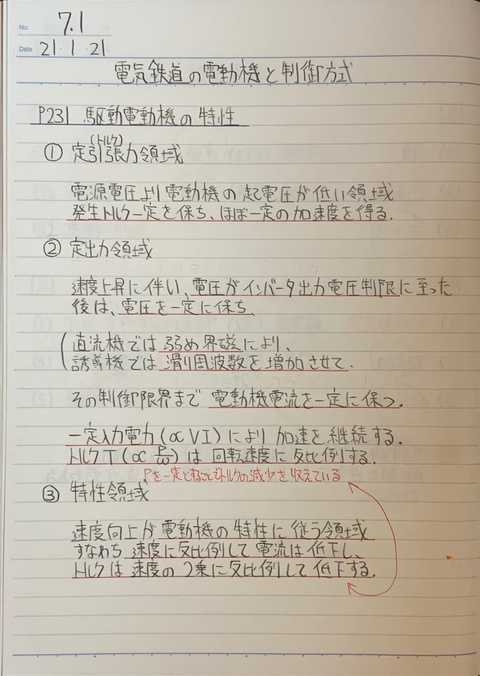 No. 7.1
Date 21・1・21
電気鉄道の電動機と制御方式
P231 駆動電動機の特性
(トルク)
① 定引張力領域
電源電圧より電動機の起電圧が低い領域
発生トルク一定を保ち、ほぼ一定の加速度を得る.
② 定出力領域
速度上昇に伴い、電圧がインバータ出力電圧制限に至った
後は、電圧を一定に保ち、
(直流機では弱め界磁により、
誘導機では滑り周波数を増加させて.
その制御限界まで電動機電流を一定に保つ.
一定入力電力(∝VI)により加速を継続する.
トルクT(∝P/ω)は回転速度に反比例する.
Pを一定と
トルクの減少を
抑えている
③ 特性領域
速度向上が電動機の特性に従う領域
すなわち速度に反比例して電流は低下し、
トルクは速度の2乗に反比例して低下する.